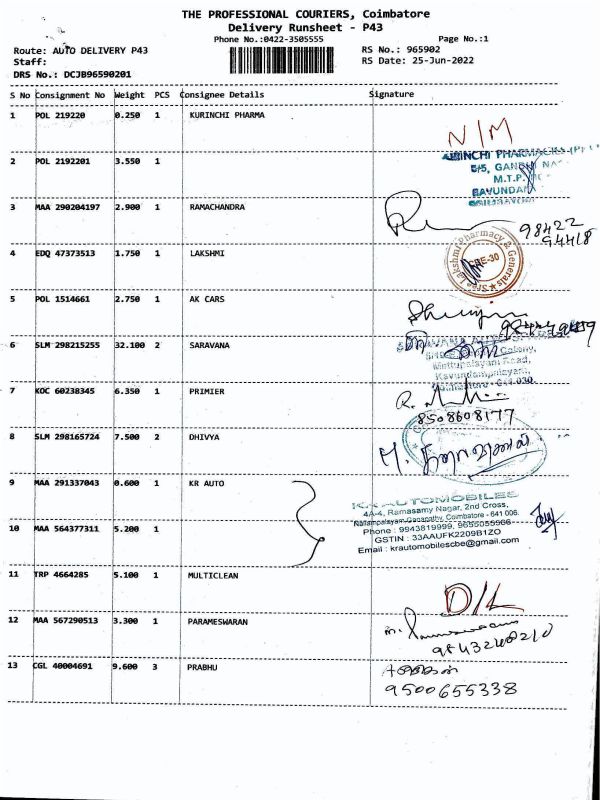 THE PROFESSIONAL COURIERS, Coimbatore
Delivery Runsheet - P43
Phone No.:0422-3505555 Page No.:1
Route: AUTO DELIVERY P43 RS No.: 965902
Staff: RS Date: 25-Jun-2022
DRS No.: DCJB96590201
S No Consignment No Weight PCS Consignee Details Signature
1 POL 219220 0.250 1 KURINCHI PHARMA
N/M
5/5, GANDHI
2 POL 2192201 3.550 1
M.T.P.
3 MAA 290204197 2.900 1 RAMACHANDRA
98422
94418
4 EDQ 47373513 1.750 1 LAKSHMI
Sree Lakshmi Pharmacy & Generals
CBE-30
5 POL 1514661 2.750 1 AK CARS
6 SLM 298215255 32.100 2 SARAVANA
Colony,
Mettupalayam Road,
Kavundampalayam,
7 KOC 60238345 6.350 1 PRIMIER
8508608177
8 SLM 298165724 7.500 2 DHIVYA
9 MAA 291337043 0.600 1 KR AUTO
KR AUTOMOBILES
4A-4, Ramasamy Nagar, 2nd Cross,
Nallampalayam, Ganapathy, Coimbatore - 641 006.
10 MAA 564377311 5.200 1
Phone : 9943819999, 9655055966
GSTIN : 33AAUFK2209B1ZO
Email : krautomobilescbe@gmail.com
11 TRP 4664285 5.100 1 MULTICLEAN
D/L
12 MAA 567290513 3.300 1 PARAMESWARAN
9843240210
13 CGL 40004691 9.600 3 PRABHU
9500655338